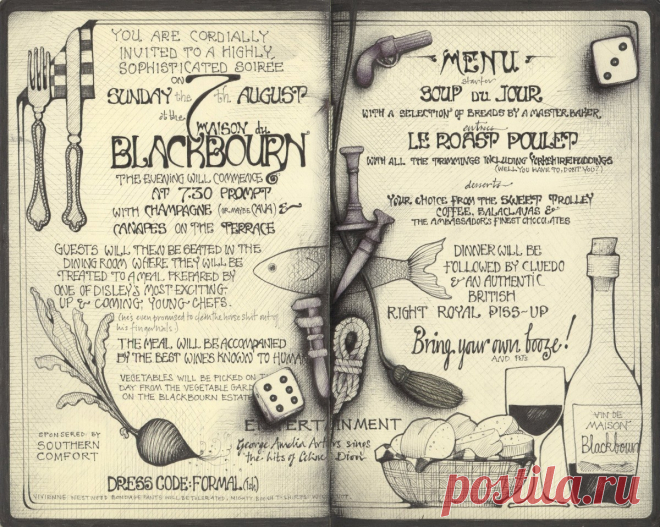 YOU ARE CORDIALLY
INVITED TO A HIGHLY
SOPHISTICATED SOIREE
ON
SUNDAY the 7th AUGUST
at the
MAISON du
BLACKBOURN
THE EVENING WILL COMMENCE @
AT 7:30 PROMPT
WITH CHAMPAGNE (OR MAYBE CAVA) &
CANAPES ON THE TERRACE
GUESTS WILL THEN BE SEATED IN THE
DINING ROOM WHERE THEY WILL BE
TREATED TO A MEAL PREPARED BY
ONE OF DISLEY'S MOST EXCITING
UP & COMING YOUNG CHEFS.
(he's even promised to clean the horse shit out of
his fingernails)
THE MEAL WILL BE ACCOMPANIED
BY THE BEST WINES KNOWN TO HUMAN
VEGETABLES WILL BE PICKED ON
DAY FROM THE VEGETABLE GARD
ON THE BLACKBOURN ESTATE
SPONSERED BY
SOUTHERN
COMFORT
ENTERTAINMENT
George Amelia Arthurs sings
the hits of Celine Dion
DRESS CODE: FORMAL (ish)
MENU
starter
SOUP DU JOUR
WITH A SELECTION OF BREADS BY A MASTER BAKER,
entrée
LE ROAST POULET
WITH ALL THE TRIMMINGS INCLUDING YORKSHIRE PUDDINGS
(WELL, YOU HAVE TO, DON'T YOU?)
desserts
YOUR CHOICE FROM THE SWEET TROLLEY
COFFEE, BALACLAVAS &
THE AMBASSADOR'S FINEST CHOCOLATES
DINNER WILL BE
FOLLOWED BY CLUEDO
& AN AUTHENTIC
BRITISH
RIGHT ROYAL PISS-UP
Bring your own booze!
AND PJ'S
VIN DE
MAISON
Blackbour
postila.ru